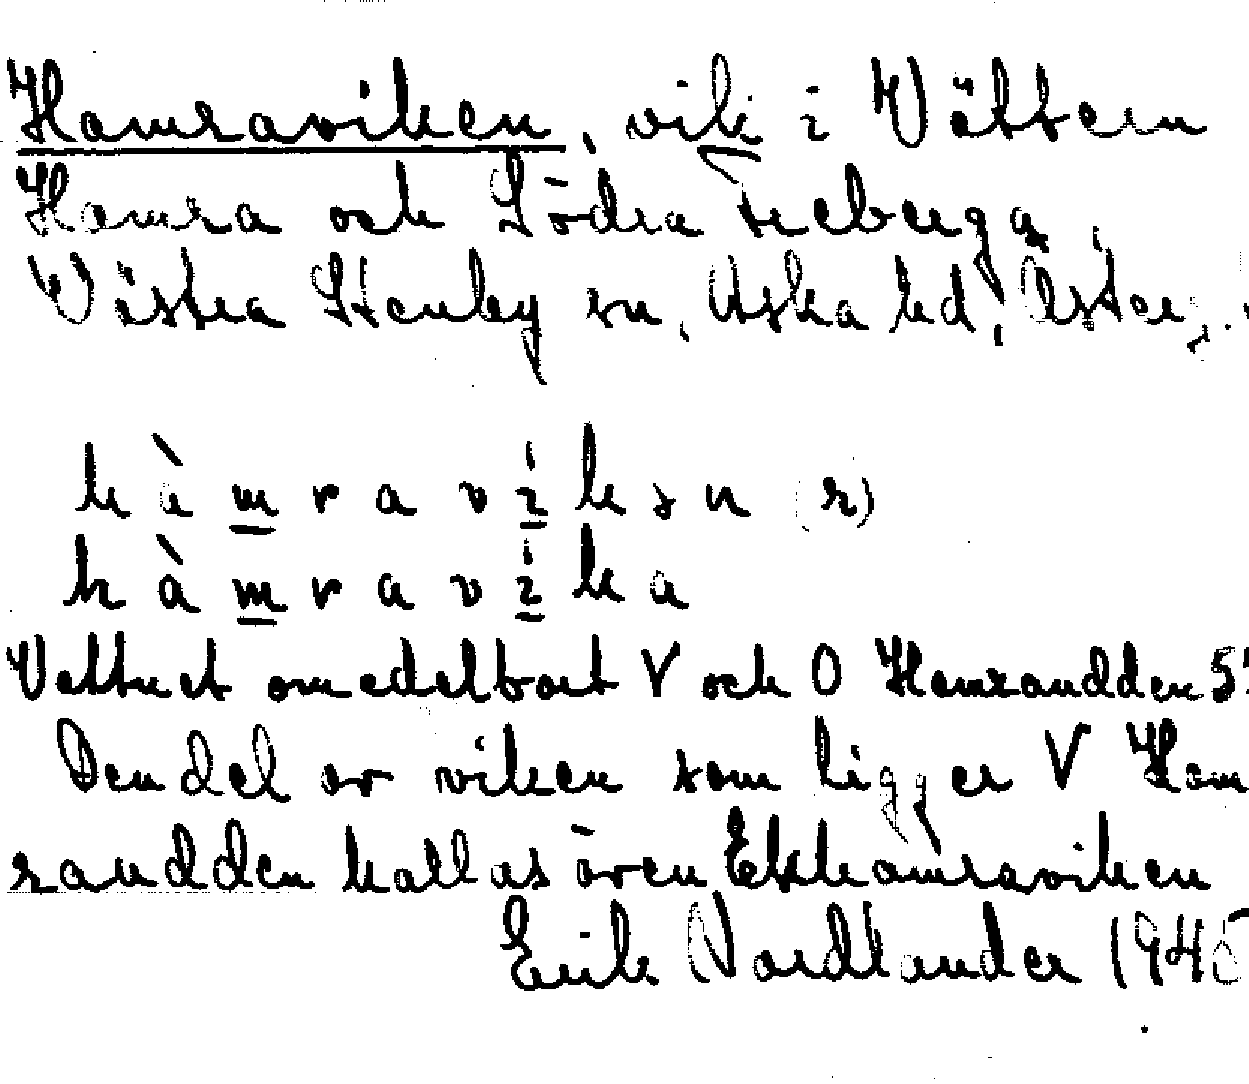 Hamraviken, vik i Vättern
Hamra och Södra Freberga,
Västra Stenby sn, Aska hd, Öster
hàmravikən (r)
hàmravika
Vattnet omedelbart V och O Hamraudden
Den del av viken som ligger V Ham
raudden kallas även Ekhamraviken
Erik Nordlander 1945